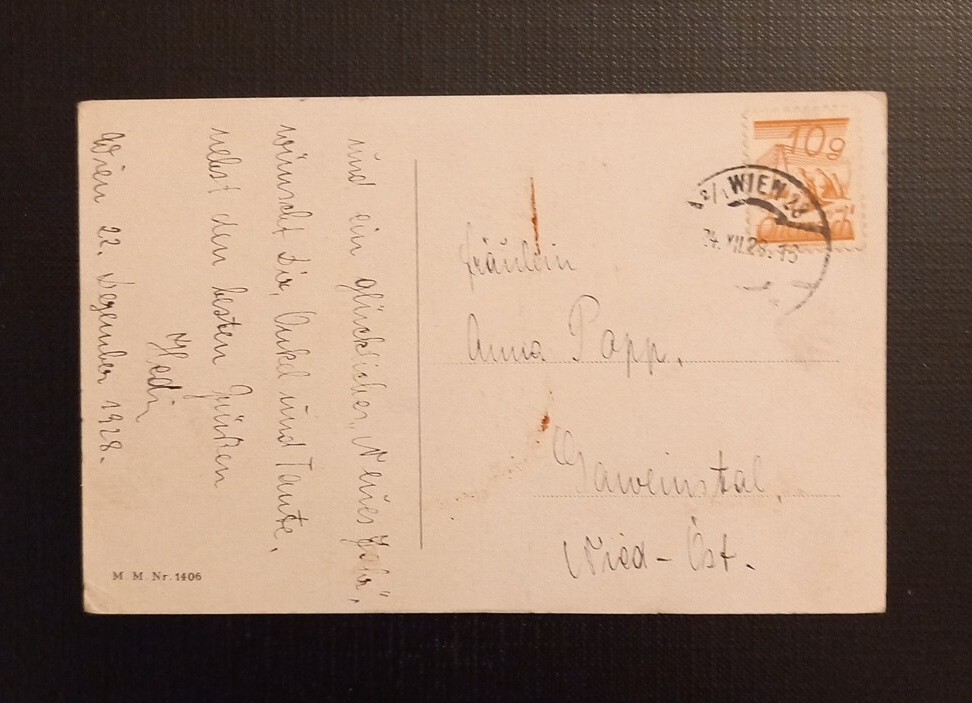 und ein glückliches „Neues Jahr",
wünscht Dir, Onkel und Tante,
nebst den besten Grüßen
Hedi
Wien 22. Dezember 1928.
M. M. Nr. 1406
10g
WIEN 28
XII.28
Fräulein
Anna Papp.
Gaweinstal,
Nied-Öst.